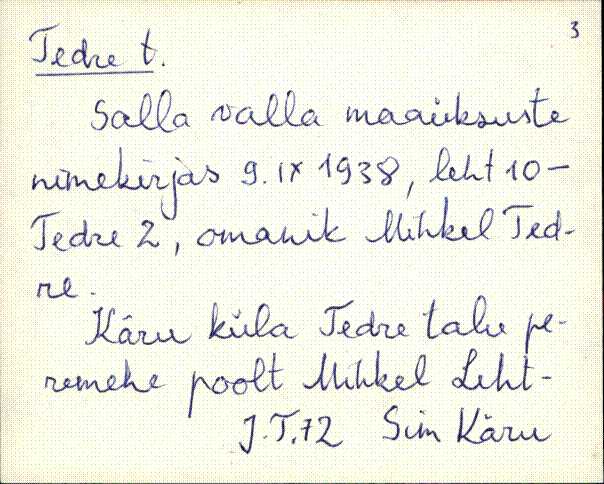 3
Tedre t.
Salla valla maaüksuste
nimekirjas 9. IX 1938, leht 10 –
Tedre 2, omanik Mihkel Ted-
re.
Käru küla Tedre talu pe-
remehe poolt Mihkel Leht-
J.T.72 Sim Käru